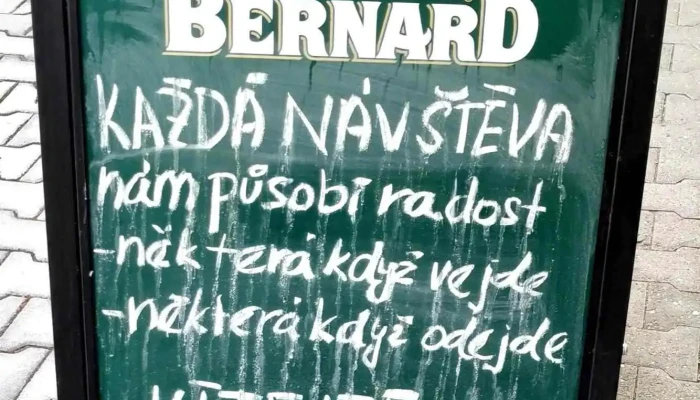 BERNARD
KAŽDÁ NÁVŠTĚVA
nám působí radost
-některá když vejde
-některá když odejde